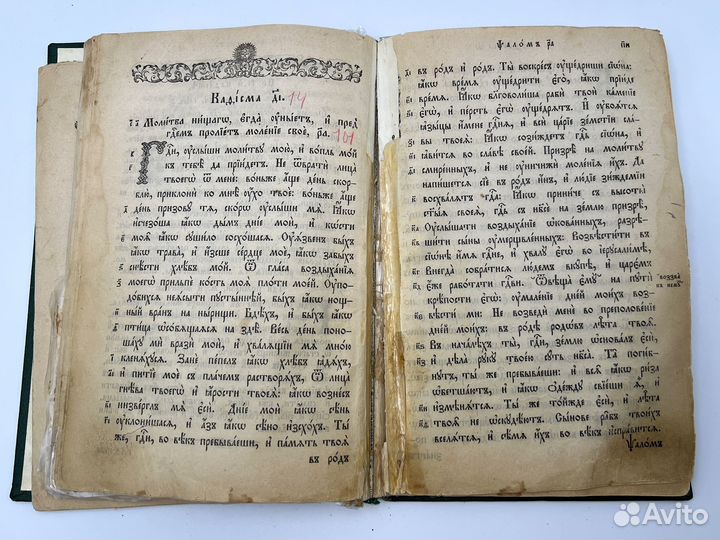 Каѳі́сма д҃і. 14
Моли́тва ни́щагѡ, є҆гда̀ ᲂу҆ны́етъ, и҆ пред̾
гдⷭ҇емъ пролїе́тъ моле́нїе своѐ, р҃а. 101
Гдⷭ҇и, ᲂу҆слы́ши моли́твꙋ мою̀, и҆ во́пль мо́й
къ тебѣ̀ да прїи́детъ. Не ѿвратѝ лица̀
твоегѡ̀ ѿ менє̀: во́ньже а҆́ще де́нь скор-
блю̀, приклонѝ ко мнѣ̀ ᲂу҆́хо твоѐ: во́ньже а҆́ще
де́нь призовꙋ́ тѧ, ско́рѡ ᲂу҆слы́ши мѧ̀. Ꙗ҆́кѡ
и҆счезо́ша ꙗ҆́кѡ ды́мъ дні́е моѝ, и҆ кѡ́сти
моѧ̑ ꙗ҆́кѡ сꙋши́ло сосхо́шасѧ. Оу҆ѧ́звенъ бы́хъ
ꙗ҆́кѡ трава̀, и҆ и҆́зсше се́рдце моѐ, ꙗ҆́кѡ забы́хъ
снѣ́сти хлѣ́бъ мо́й. Ѿ гла́са воздыха́нїѧ
моегѡ̀ прильпѐ ко́сть моѧ̀ пло́ти мое́й. Оу҆по-
до́бихсѧ неѧ́сыти пꙋсты́ннѣй, бы́хъ ꙗ҆́кѡ нощ-
ны́й вра́нъ на ны́рищи. Бдѣ́хъ, и҆ бы́хъ ꙗ҆́кѡ
пти́ца ѡ҆сѡ́бѧщаѧсѧ на здѣ̀. Ве́сь де́нь поно-
ша́хꙋ мѝ вразѝ моѝ, и҆ хва́лѧщїи мѧ̀ мно́ю
кленѧ́хꙋсѧ. Занѐ пе́пелъ ꙗ҆́кѡ хлѣ́бъ ꙗ҆дѧ́хъ,
и҆ питїѐ моѐ съ пла́чемъ растворѧ́хъ, Ѿ лица̀
гнѣ́ва твоегѡ̀ и҆ ꙗ҆́рости твоеѧ̀: ꙗ҆́кѡ возне́съ
низве́рглъ мѧ̀ є҆сѝ. Дні́е моѝ ꙗ҆́кѡ сѣ́нь
ᲂу҆клони́шасѧ, и҆ а҆́зъ ꙗ҆́кѡ сѣ́но и҆зсхо́хъ. Ты́
же, гдⷭ҇и, во вѣ́къ пребыва́еши, и҆ па́мѧть твоѧ̀
въ ро́дъ
Ѱало́мъ р҃а
въ ро́дъ и҆ ро́дъ. Ты̀ воскре́съ ᲂу҆ще́дриши сїѡ́на:
ꙗ҆́кѡ вре́мѧ ᲂу҆ще́дрити є҆го̀, ꙗ҆́кѡ прїи́де
вре́мѧ. Ꙗ҆́кѡ бл҃говоли́ша рабѝ твоѝ ка́менїе
є҆гѡ̀, и҆ пе́рсть є҆гѡ̀ ᲂу҆ще́дрѧтъ. И҆ ᲂу҆боѧ́тсѧ
ꙗ҆зы́цы и҆́мене гдⷭ҇нѧ, и҆ всѝ ца́рїе зе́мстїи сла́-
вы твоеѧ̀: Ꙗ҆́кѡ сози́ждетъ гдⷭ҇ь сїѡ́на, и҆
ꙗ҆ви́тсѧ во сла́вѣ свое́й. Призрѣ̀ на моли́твꙋ
смире́нныхъ, и҆ не ᲂу҆ничижѝ моле́нїѧ и҆́хъ. Да
напи́шетсѧ сїѐ въ ро́дъ и҆́нъ, и҆ лю́дїе зи́ждемїи
восхва́лѧтъ гдⷭ҇а: Ꙗ҆́кѡ прини́че съ высоты̀
ст҃ы́ѧ своеѧ̀, гдⷭ҇ь съ нб҃сѐ на зе́млю призрѣ̀,
Оу҆слы́шати воздыха́нїе ѡ҆кова́нныхъ, разрѣ-
ши́ти сы́ны ᲂу҆мерщвле́нныхъ: Возвѣсти́ти въ
сїѡ́нѣ и҆́мѧ гдⷭ҇не, и҆ хвалꙋ̀ є҆гѡ̀ во і҆ерⷭ҇ли́мѣ,
Внегда̀ собра́тисѧ лю́демъ вкꙋ́пѣ, и҆ царє́мъ
є҆́же рабо́тати гдⷭ҇еви. Ѿвѣща̀ є҆мꙋ̀ на пꙋтѝ
крѣ́пости є҆гѡ̀: ᲂу҆мале́нїе дні́й мои́хъ воз-
вѣстѝ мѝ: Не возведѝ менѐ во преполове́нїе
дні́й мои́хъ: въ ро́дѣ родѡ́въ лѣ̑та твоѧ̑.
Въ нача́лѣхъ ты̀, гдⷭ҇и, зе́млю ѡ҆снова́лъ є҆сѝ,
и҆ дѣла̀ рꙋкꙋ̀ твоє́ю сꙋ́ть нб҃са̀. Та̑ поги́б-
нꙋтъ, ты́ же пребыва́еши: и҆ всѧ̑ ꙗ҆́кѡ ри́за
ѡ҆бетша́ютъ, и҆ ꙗ҆́кѡ ѻ҆де́ждꙋ свїе́ши ѧ҆̀, и҆
и҆змѣнѧ́тсѧ. Ты́ же то́йжде є҆сѝ, и҆ лѣ̑та
твоѧ̑ не ѡ҆скꙋдѣ́ютъ. Сы́нове ра̑бъ твои́хъ
вселѧ́тсѧ, и҆ сѣ́мѧ и҆́хъ во вѣ́къ и҆спра́витсѧ.
Ѱало́мъ
Avito